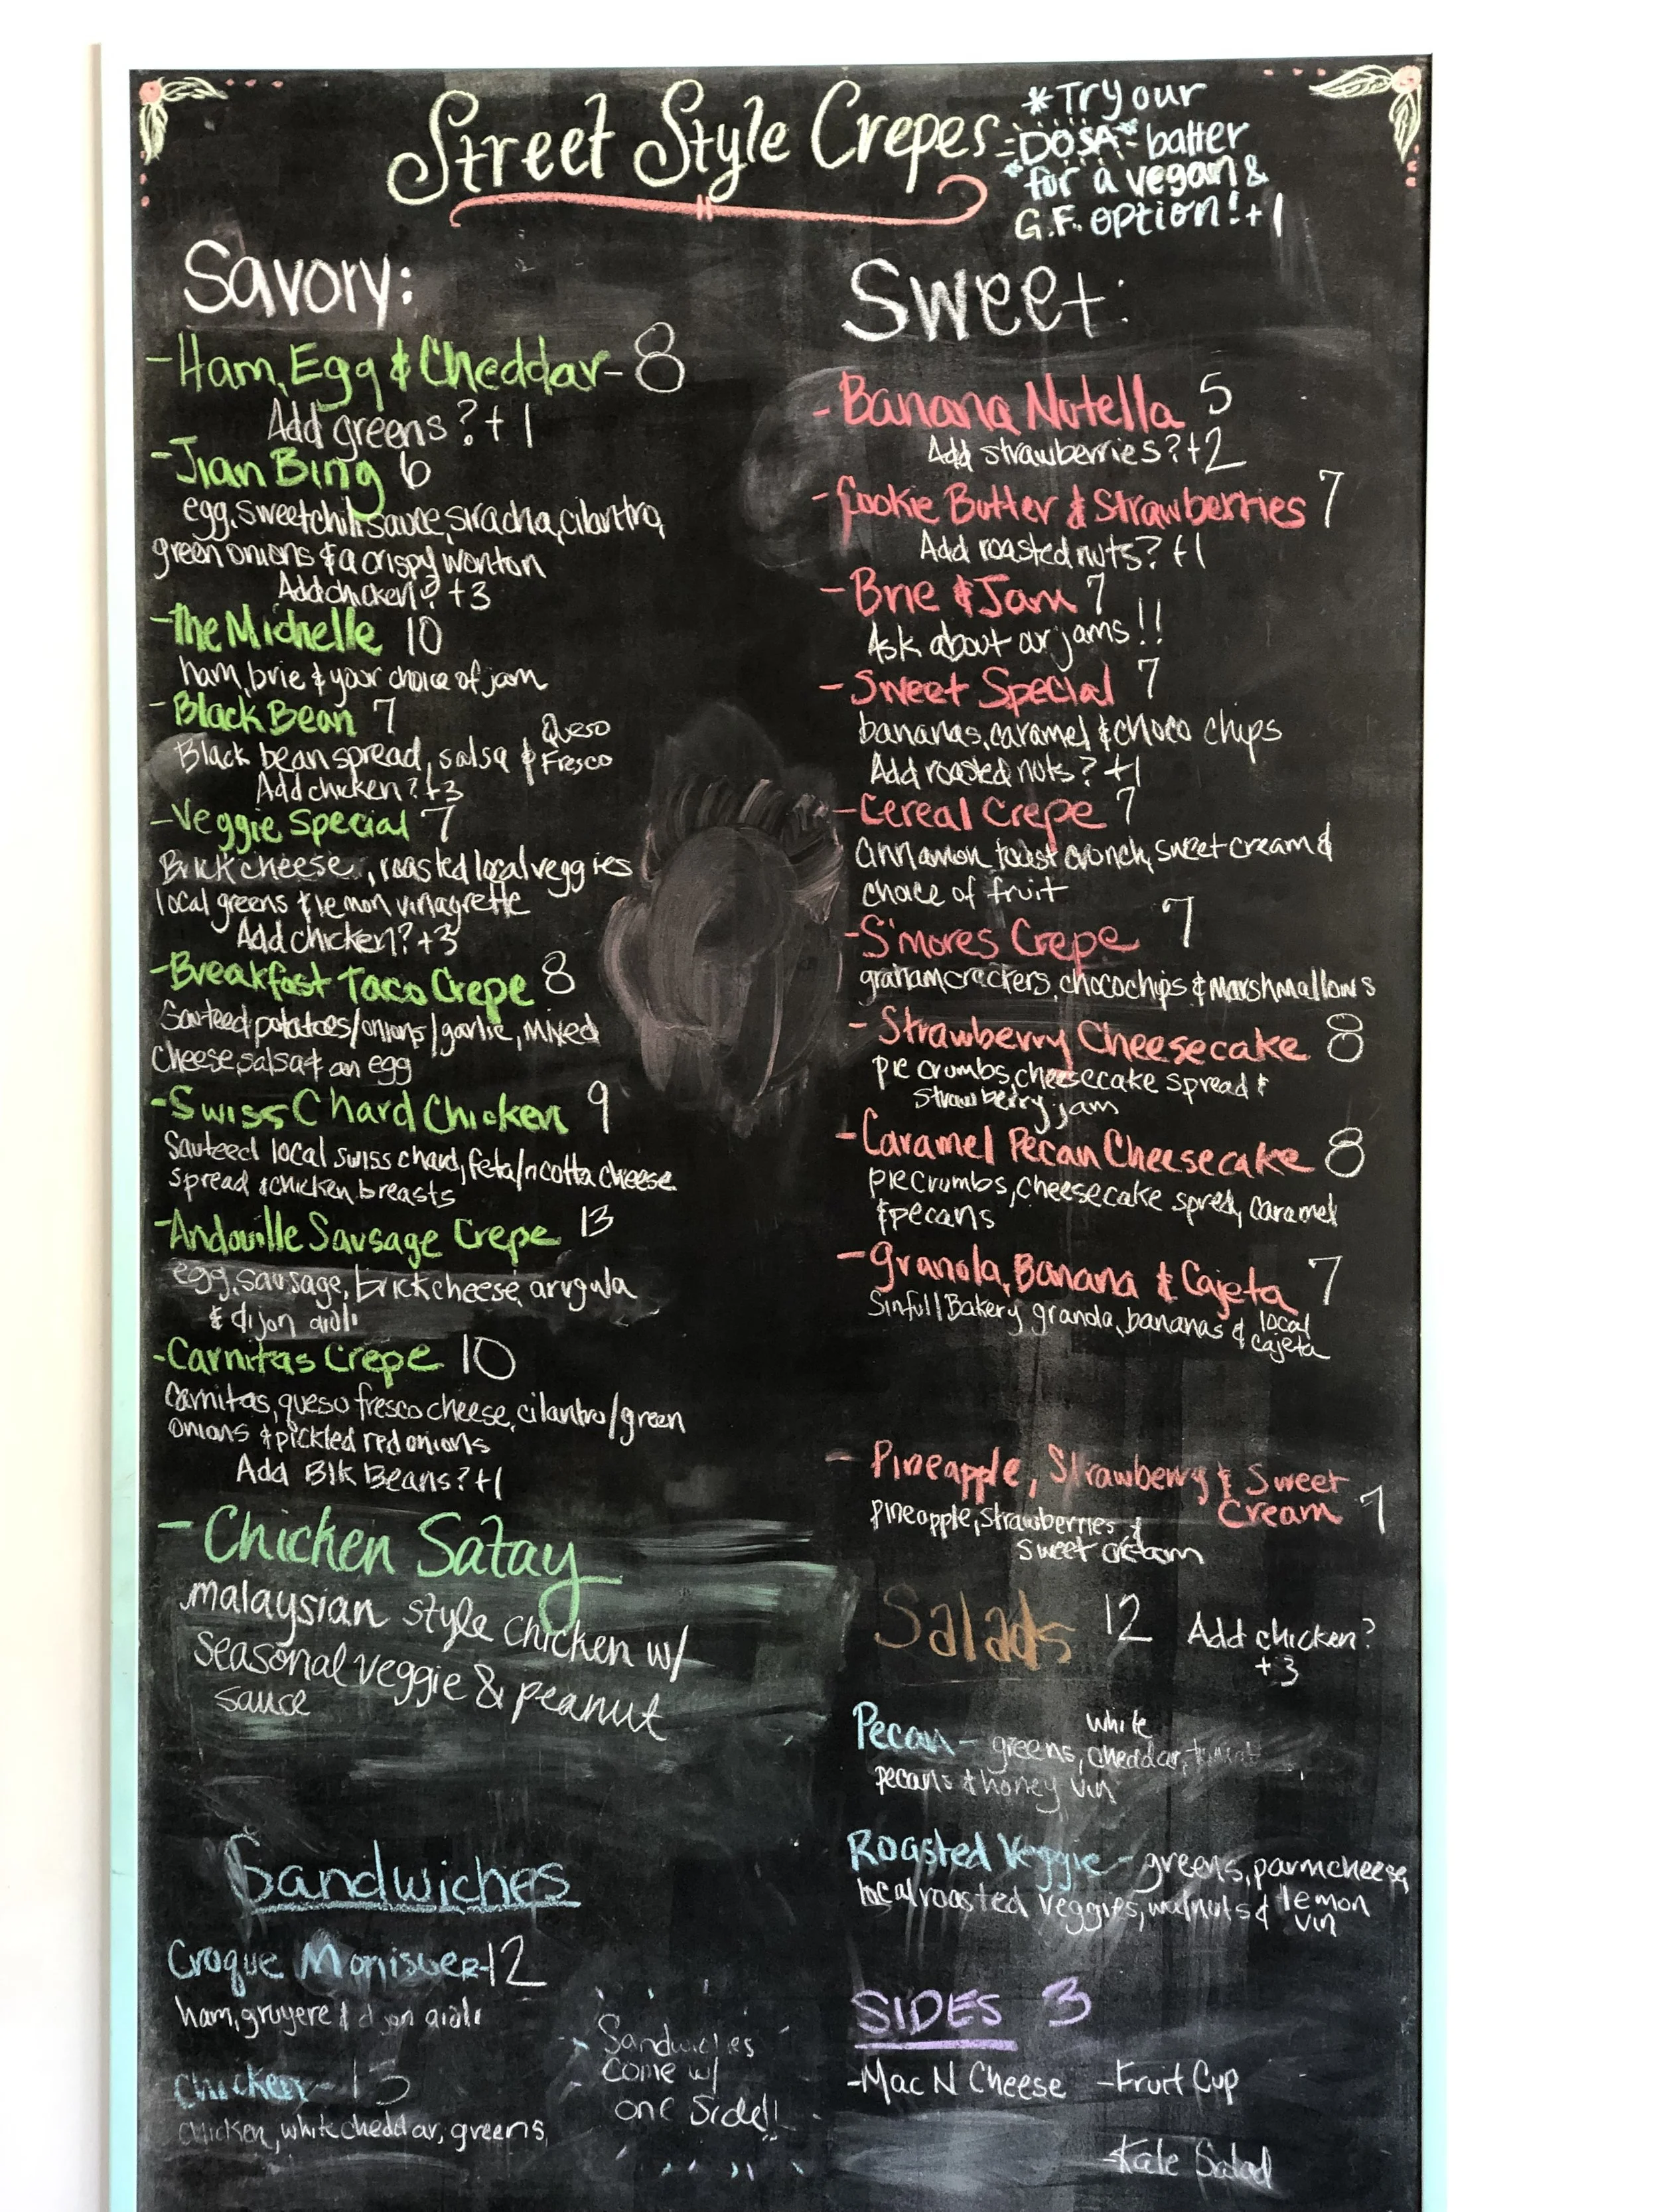 Street Style Crepes
*Try our
DOSA batter
for a vegan &
G.F. option! +1
Savory:
-Ham, Egg & Cheddar- 8
Add greens? +1
-Jian Bing 6
egg, sweet chili sauce, siracha, cilantro,
green onions & a crispy wonton
Add chicken? +3
-The Michelle 10
ham, brie & your choice of jam
-Black Bean 7
Black bean spread, salsa & Queso Fresco
Add chicken? +3
-Veggie Special 7
Brick cheese, roasted local veggies
local greens & lemon vinagrette
Add chicken? +3
-Breakfast Taco Crepe 8
Sauteed potatoes/onions/garlic, Mixed
Cheese, salsa & an egg
-Swiss Chard Chicken 9
Sauteed local swiss chard, feta/ricotta cheese
spread & chicken breasts
-Andouille Sausage Crepe 13
egg, sausage, brick cheese, arugula
& dijon aioli
-Carnitas Crepe 10
Carnitas, queso fresco cheese, cilantro/green
onions & pickled red onions
Add Blk Beans? +1
-Chicken Satay
malaysian style chicken w/
seasonal veggie & peanut
sauce
Sandwiches
Croque Monisuer-12
ham, gruyere & dijon aioli
Chicken-13
chicken, white cheddar, greens,
Sandwiches
come w/
one Side!!
Sweet:
-Banana Nutella 5
Add strawberries? +2
-Cookie Butter & Strawberries 7
Add roasted nuts? +1
-Brie & Jam 7
Ask about our jams!!
-Sweet Special 7
bananas, caramel & choco chips
Add roasted nuts? +1
-Cereal Crepe 7
Cinnamon toast crunch, sweet cream &
choice of fruit
-S'mores Crepe 7
graham crackers, choco chips & marshmallows
-Strawberry Cheesecake 8
pie crumbs, cheesecake spread &
strawberry jam
-Caramel Pecan Cheesecake 8
pie crumbs, cheesecake spred, caramel
& pecans
-Granola, Banana & Cajeta 7
Sinfull Bakery granola, bananas & local
cajeta
-Pineapple, Strawberry & Sweet
Cream 7
pineapple, strawberries &
sweet cream
Salads 12 Add chicken?
+3
Pecan- greens, white cheddar,
pecans & honey vin
Roasted Veggie- greens, parm cheese,
local roasted veggies, walnuts & lemon
vin
SIDES 3
-Mac N Cheese -Fruit Cup
-Kale Salad